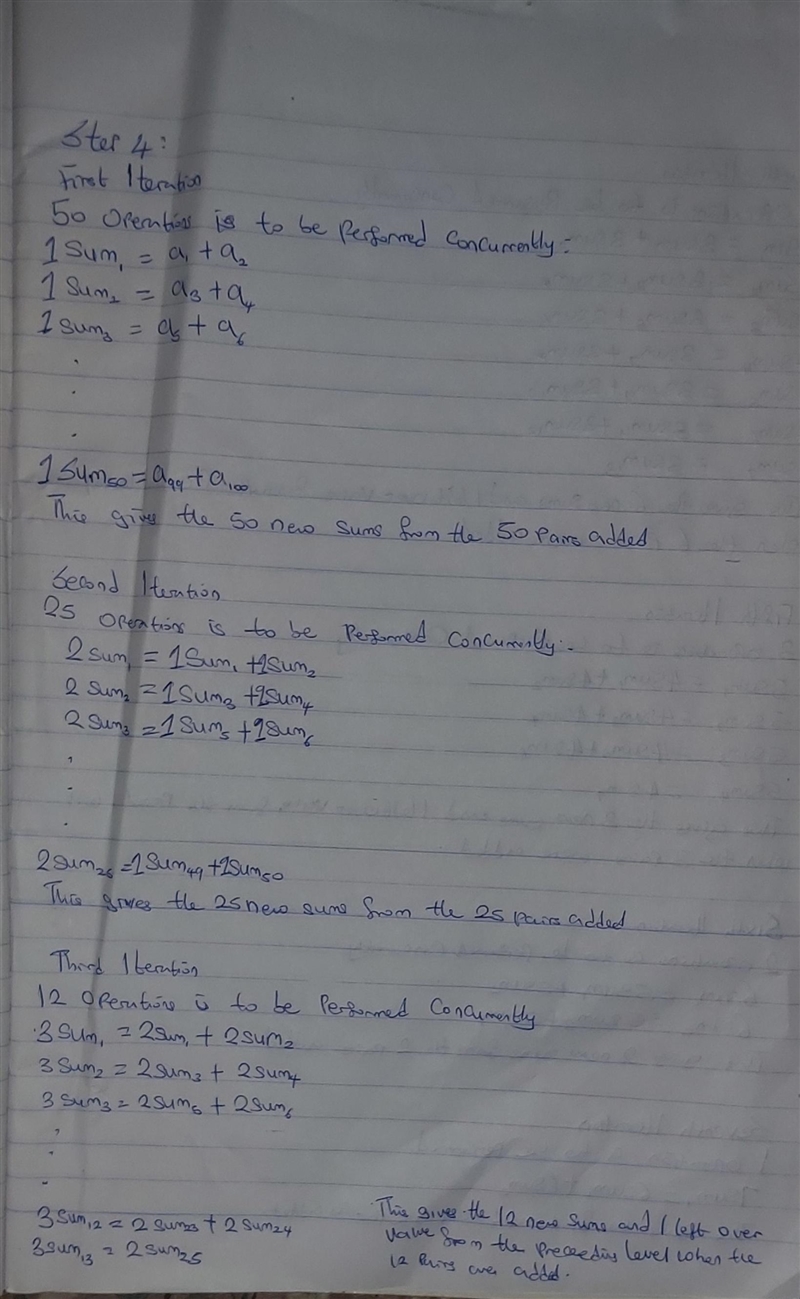 Step 4:
First Iteration
50 Operations is to be Performed Concurrently:
1Sum₁ = a₁ + a₂
1Sum₂ = a₃ + a₄
1Sum₃ = a₅ + a₆
.
.
.
1Sum₅₀ = a₉₉ + a₁₀₀
This gives the 50 new sums from the 50 Pairs added
Second Iteration
25 Operations is to be Performed Concurrently:
2Sum₁ = 1Sum₁ + 1Sum₂
2Sum₂ = 1Sum₃ + 1Sum₄
2Sum₃ = 1Sum₅ + 1Sum₆
.
.
.
2Sum₂₅ = 1Sum₄₉ + 1Sum₅₀
This gives the 25 new sums from the 25 pairs added
Third Iteration
12 Operations is to be Performed Concurrently
3Sum₁ = 2Sum₁ + 2Sum₂
3Sum₂ = 2Sum₃ + 2Sum₄
3Sum₃ = 2Sum₅ + 2Sum₆
.
.
.
3Sum₁₂ = 2Sum₂₃ + 2Sum₂₄
3Sum₁₃ = 2Sum₂₅
This gives the 12 new sums and 1 left over
value from the preceeding level when the
12 Pairs are added.